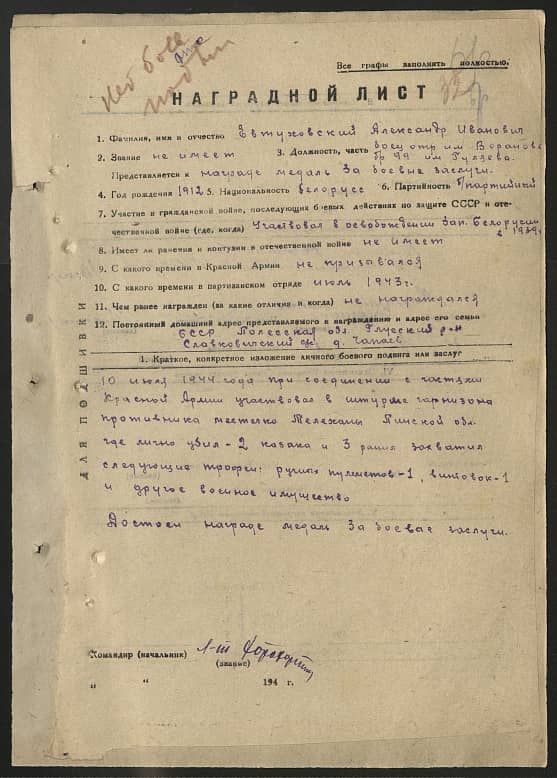 Нет боев
подвиг
Все графы заполнять полностью.
НАГРАДНОЙ ЛИСТ
1. Фамилия, имя и отчество Евтуховский Александр Иванович
2. Звание не имеет 3. Должность, часть боец отр. им Воронова
бр 99 им Гуляева.
Представляется к награде медаль За боевые заслуги.
4. Год рождения 1912 5. Национальность белорусс 6. Партийность б/партийный
7. Участие в гражданской войне, последующих боевых действиях по защите СССР и оте-
чественной войне (где, когда) Участвовал в освобождении Зап. Белоруссии
в 1939г.
8. Имеет ли ранения и контузии в отечественной войне не имеет
9. С какого времени в Красной Армии не призывался
10. С какого времени в партизанском отряде июль 1943г.
11. Чем ранее награжден (за какие отличия и когда) не награждался
12. Постоянный домашний адрес представляемого к награждению и адрес его семьи
БССР Полесская обл. Глусский р-н
Славковичский с/с д. Чапаев
1. Краткое, конкретное изложение личного боевого подвига или заслуг
10 июля 1944 года при соединении с частями
Красной Армии участвовал в штурме гарнизона
противника местечко Телеханы Пинской обл.
где лично убил-2 козака и 3 ранил захватил
следующие трофеи: ручных пулеметов-1, винтовок-1
и другое военное имущество
Достоен награде медаль За боевые заслуги.
ДЛЯ ПОДШИВКИ
Командир (начальник) Л-т
(звание)
„ “ 194 г.